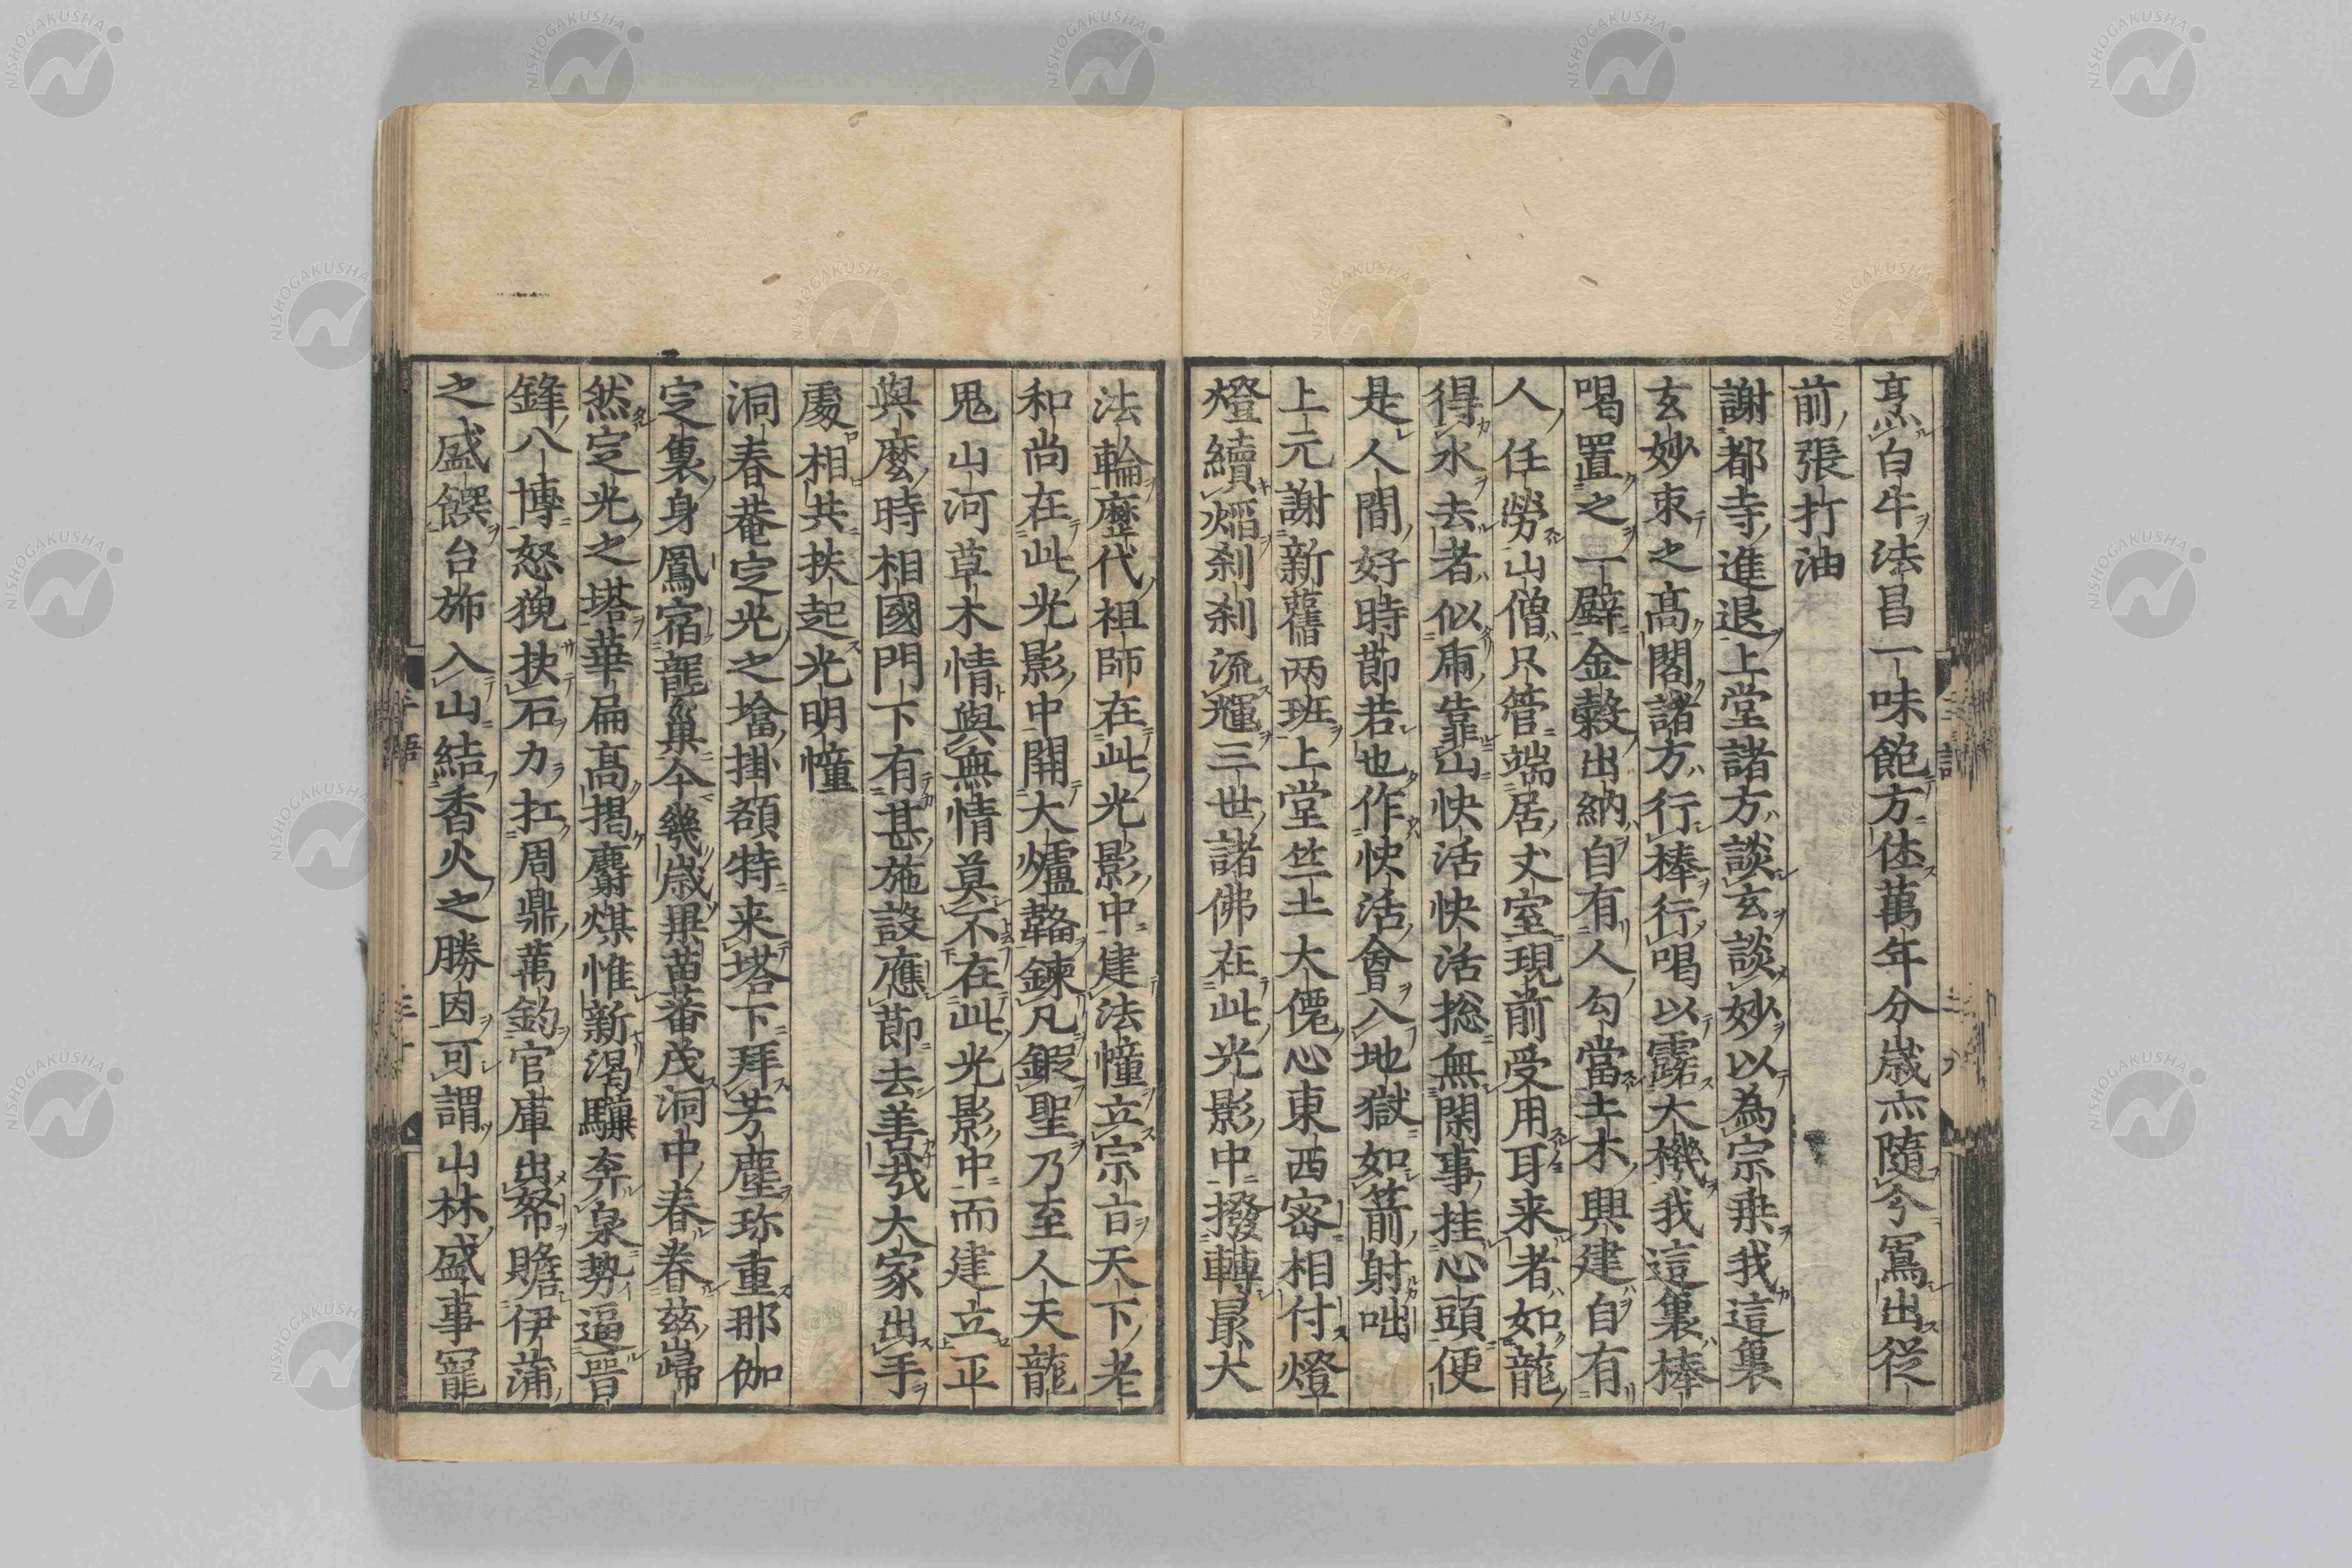 烹白牛法昌一味飽方休萬年分歳亦隨今冩出従
前張打油
謝都寺進退上堂諸方談玄談妙以為宗乗我這裏
玄妙束之髙閣諸方行棒行喝以露大機我這裏棒
喝置之一壁金穀出納自有人勾當土木興建自有
人任勞山僧只管端居丈室現前受用耳来者如龍
得水去者似席靠山快活快活捴無閑事挂心頭便
是人間好時節若也作快活會入地獄如箭射咄
上元謝新舊兩班上堂竺土大僊心東西密相付燈
燈續焰刹刹流輝三世諸佛在此光影中撥轉最大
法輪歷代祖師在此光影中建法幢立宗旨天下老
和尚在此光影中開大爐鞴鍊凡鍜聖乃至人天龍
鬼山河草木情與無情莫不在此光影中而建立正
與麼時相國門下有甚施設應節去善哉大家出手
處相共扶起光明幢
洞春菴定光之墖掛額特来塔下拜芳塵珎重那伽
定裏身鳳宿龍巢今幾歳果苗蕃茂洞中春春兹巋
然定光之塔華扁髙揭麝煤惟新渴驥奔泉勢逼晋
鋒八博怒猊抉石力扛周鼎萬鈞官庫出帑贍伊蒲
之盛饌台斾入山結香火之勝因可謂山林盛事寵